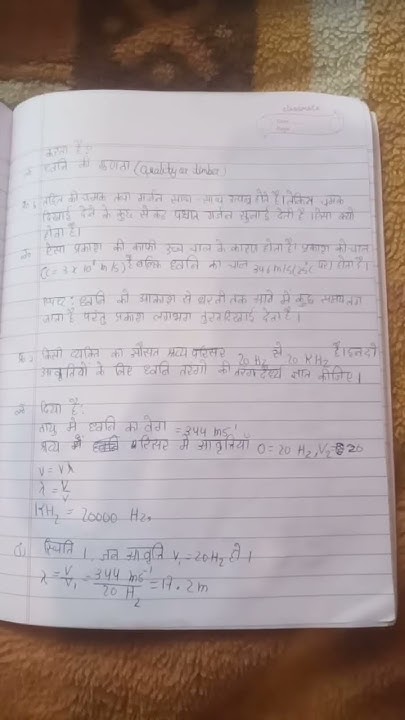 classmate
Date
Page
करता है?
उ. ध्वनि की गुणता (Quality or timber)
प्र.6 तड़ित की चमक तथा गर्जन साथ-साथ उत्पन्न होते हैं। लेकिन चमक
दिखाई देने के कुछ सेकंड पश्चात् गर्जन सुनाई देता है। ऐसा क्यों
होता है।
उ. ऐसा प्रकाश की काफी उच्च चाल के कारण होता है। प्रकाश की चाल
(c = 3 × 10⁸ m/s) है जबकि ध्वनि का चाल 344 m/s (22°C पर) होता है।
स्पष्ट: ध्वनि को आकाश से धरती तक आने में कुछ समय लग
जाता है परंतु प्रकाश लगभग तुरंत दिखाई देता है।
किसी व्यक्ति का औसत श्रव्य परिसर 20 Hz से 20 KHz है। इन दो
आवृत्तियों के लिए ध्वनि तरंगो की तरंग दैर्ध्य ज्ञात कीजिए।
उ. दिया है:
वायु में ध्वनि का वेग = 344 ms⁻¹
श्रव्य परिसर में आवृत्तियाँ = 20 Hz, V₂ = 20
V = Vλ
λ = V/V
KHz = 20000 Hz.
स्थिति 1. जब आवृत्ति V₁ = 20Hz हो।
λ = V/V₁ = 344 ms⁻¹/20 Hz = 17.2 m